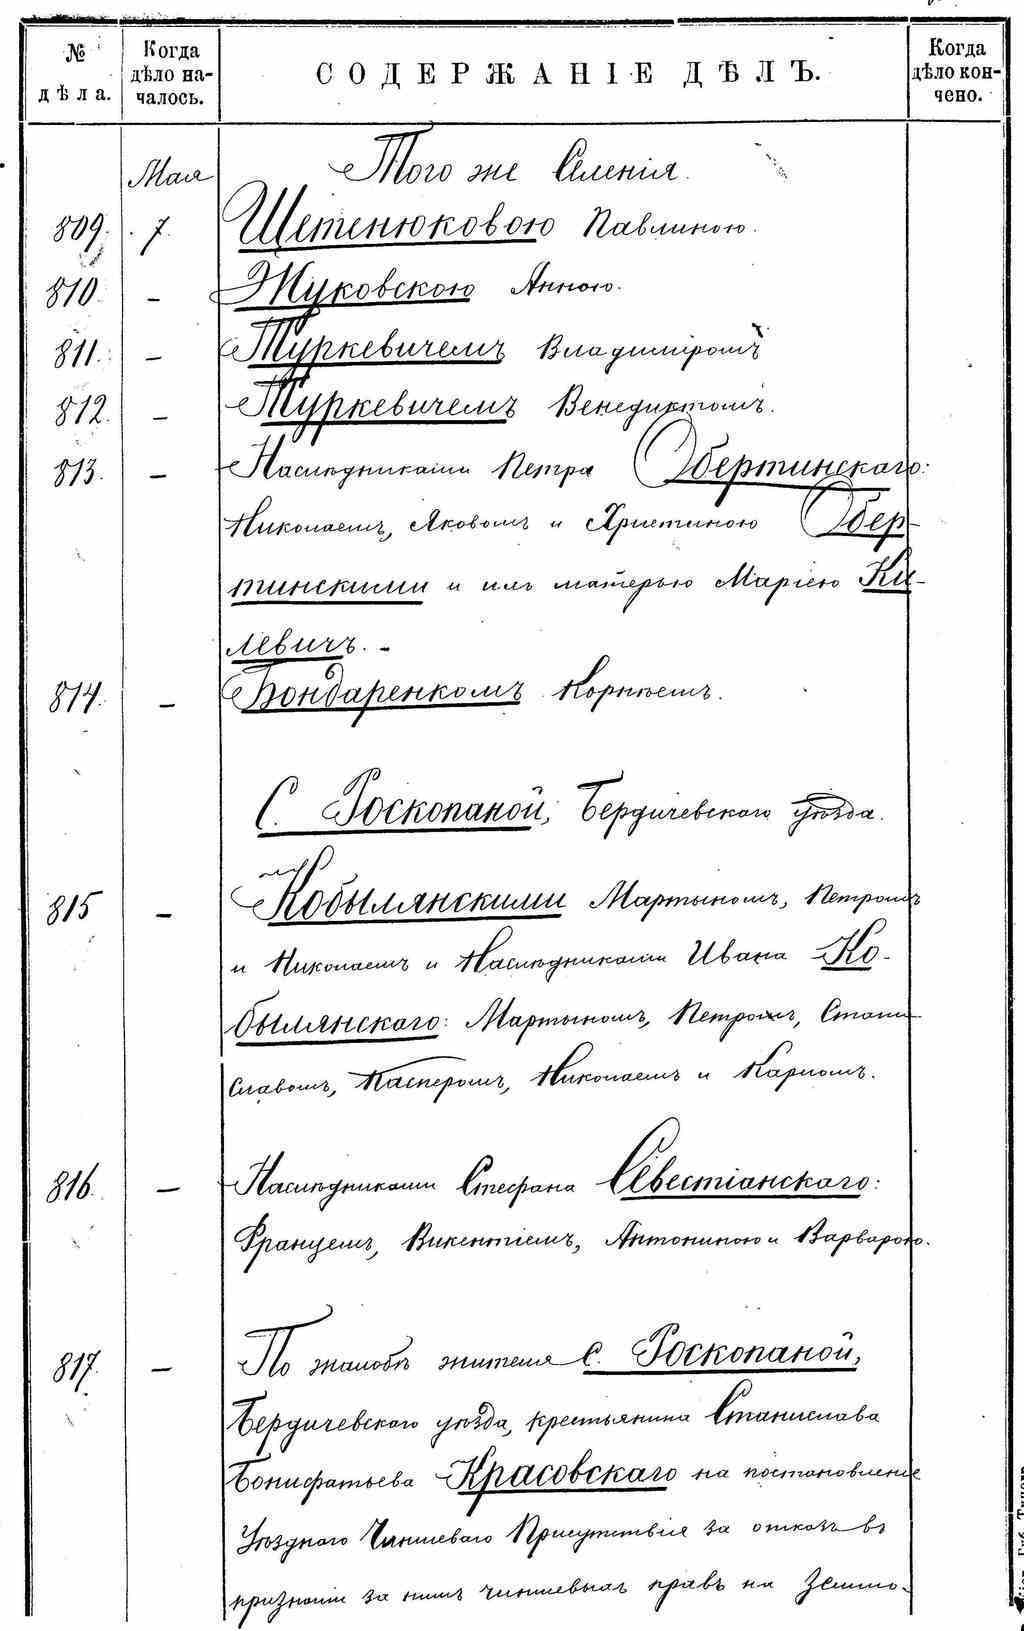 № дѣла. Когда дѣло началось. СОДЕРЖАНІЕ ДѢЛЪ. Когда дѣло кончено.
Мая Того же Селенія.
809. 7. Щетенюковою Павлиною.
810. – Жуковскою Анною.
811. – Туркевичемъ Владиміромъ
812. – Туркевичемъ Венедиктомъ.
813. – Наслѣдниками Петра Обертинскаго:
Николаемъ, Яковомъ и Христиною Обер-
тинскими и ихъ матерью Маріею Ки-
левичъ. –
814. – Бондаренкомъ Корнѣемъ.
С. Роскопаной, Бердичевскаго уѣзда.
815 – Кобылянскими Мартыномъ, Петромъ
и Николаемъ и Наслѣдниками Ивана Ко-
былянскаго: Мартыномъ, Петромъ, Стани
славомъ, Касперомъ, Николаемъ и Карломъ.
816. – Наслѣдниками Стефана Севестіанскаго:
Францемъ, Викентіемъ, Антониною и Варварою.
817. – По жалобѣ жителя С. Роскопаной,
Бердичевскаго уѣзда, крестьянина Станислава
Бонифатьева Красовскаго на постановленіе
Уѣзднаго Чиншеваго Присутствія за отказъ въ
признаніи за нимъ чиншевыхъ правъ на землю-